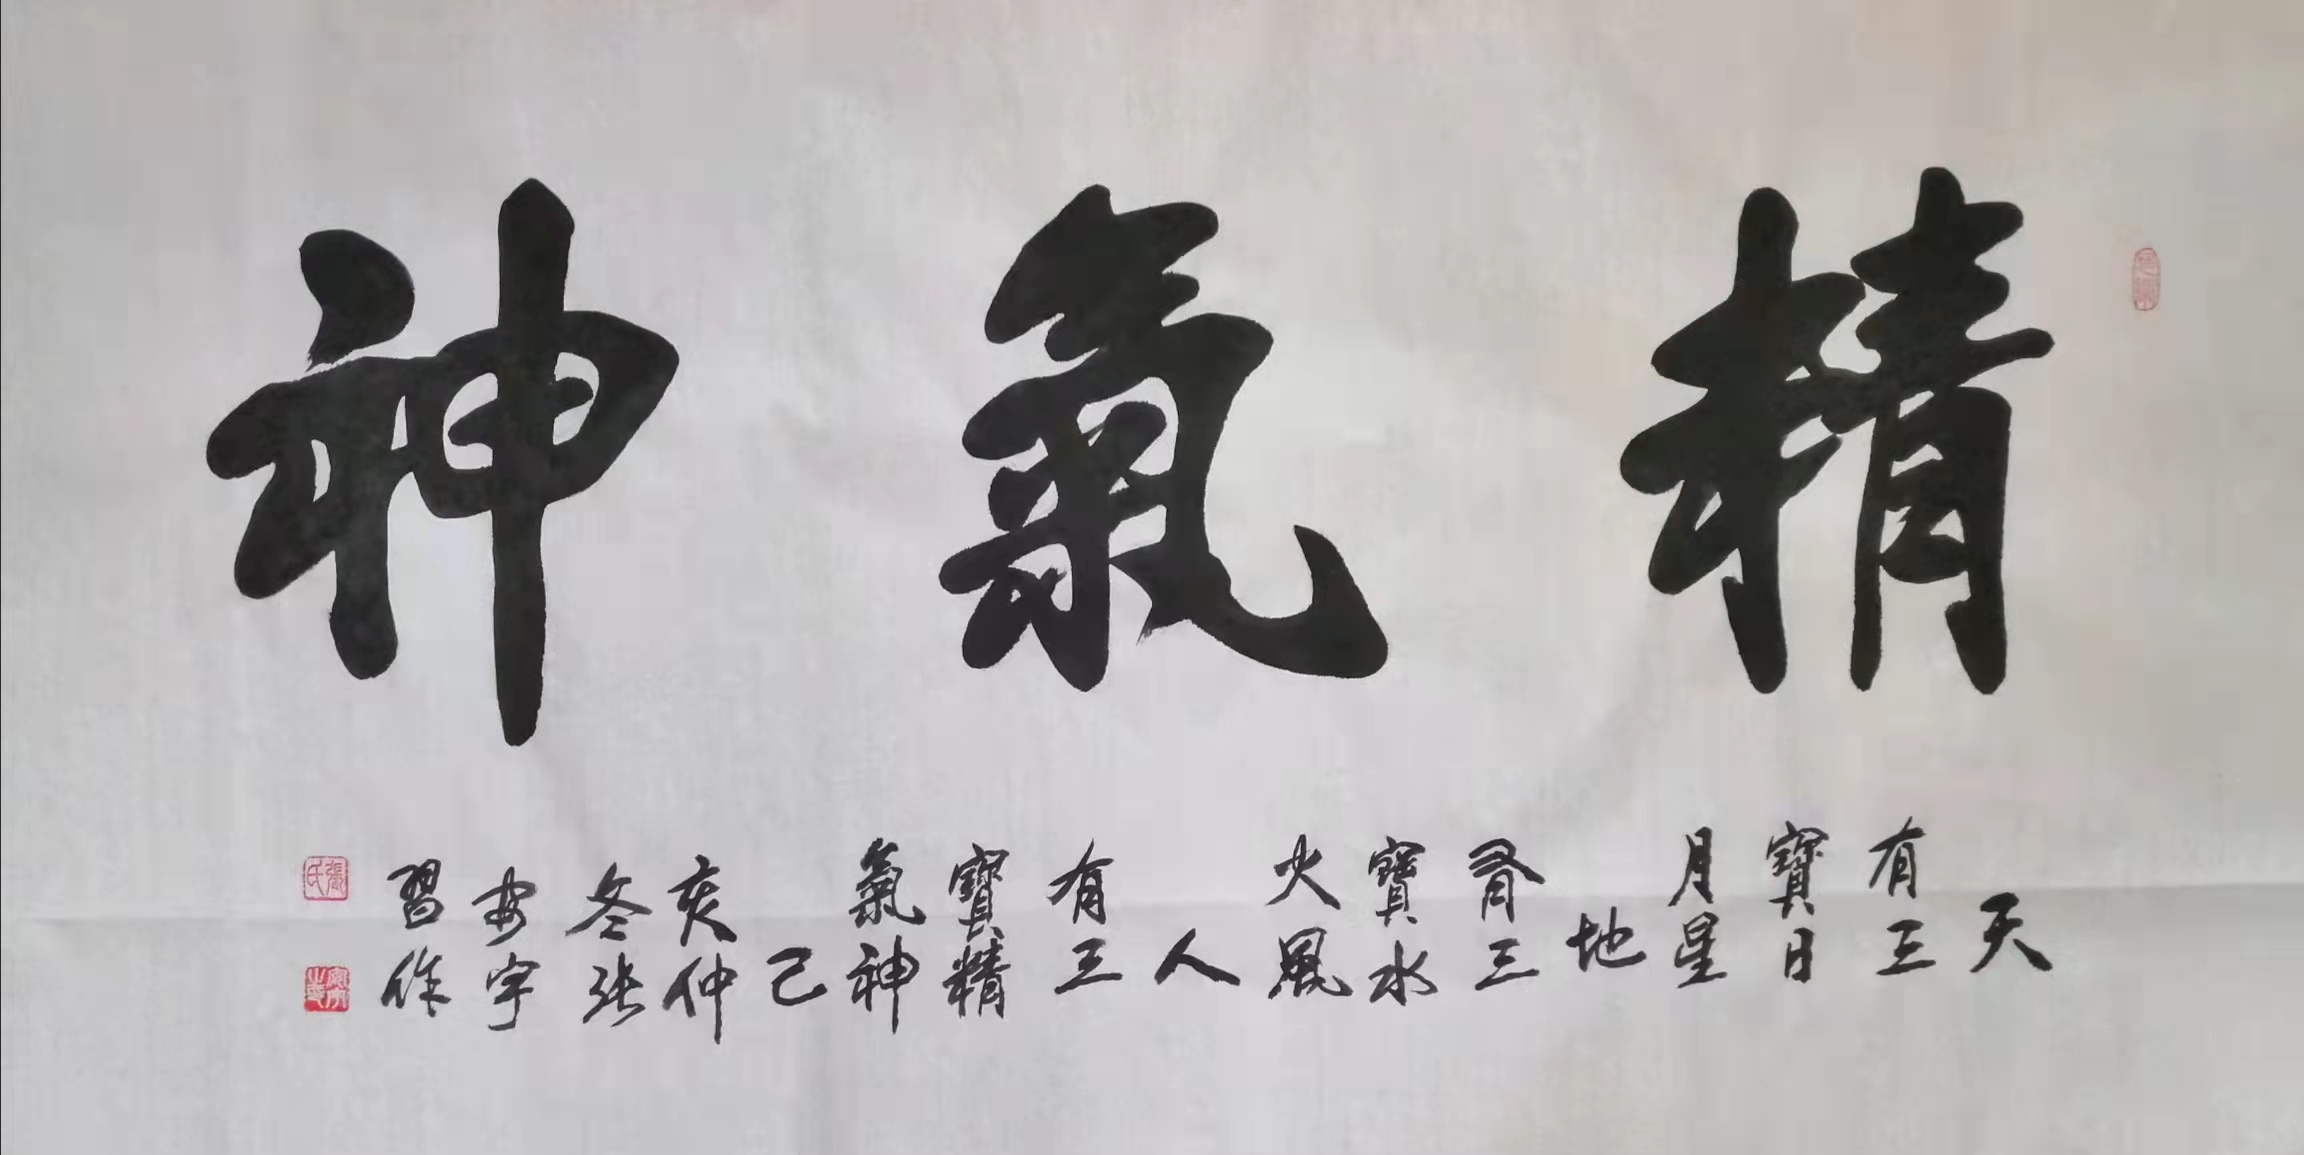 精氣神
天
有三
寶日
月星
地
有三
寶水
火風
人
有三
寶精
氣神
己
亥仲
冬张
安宇
習作
張氏